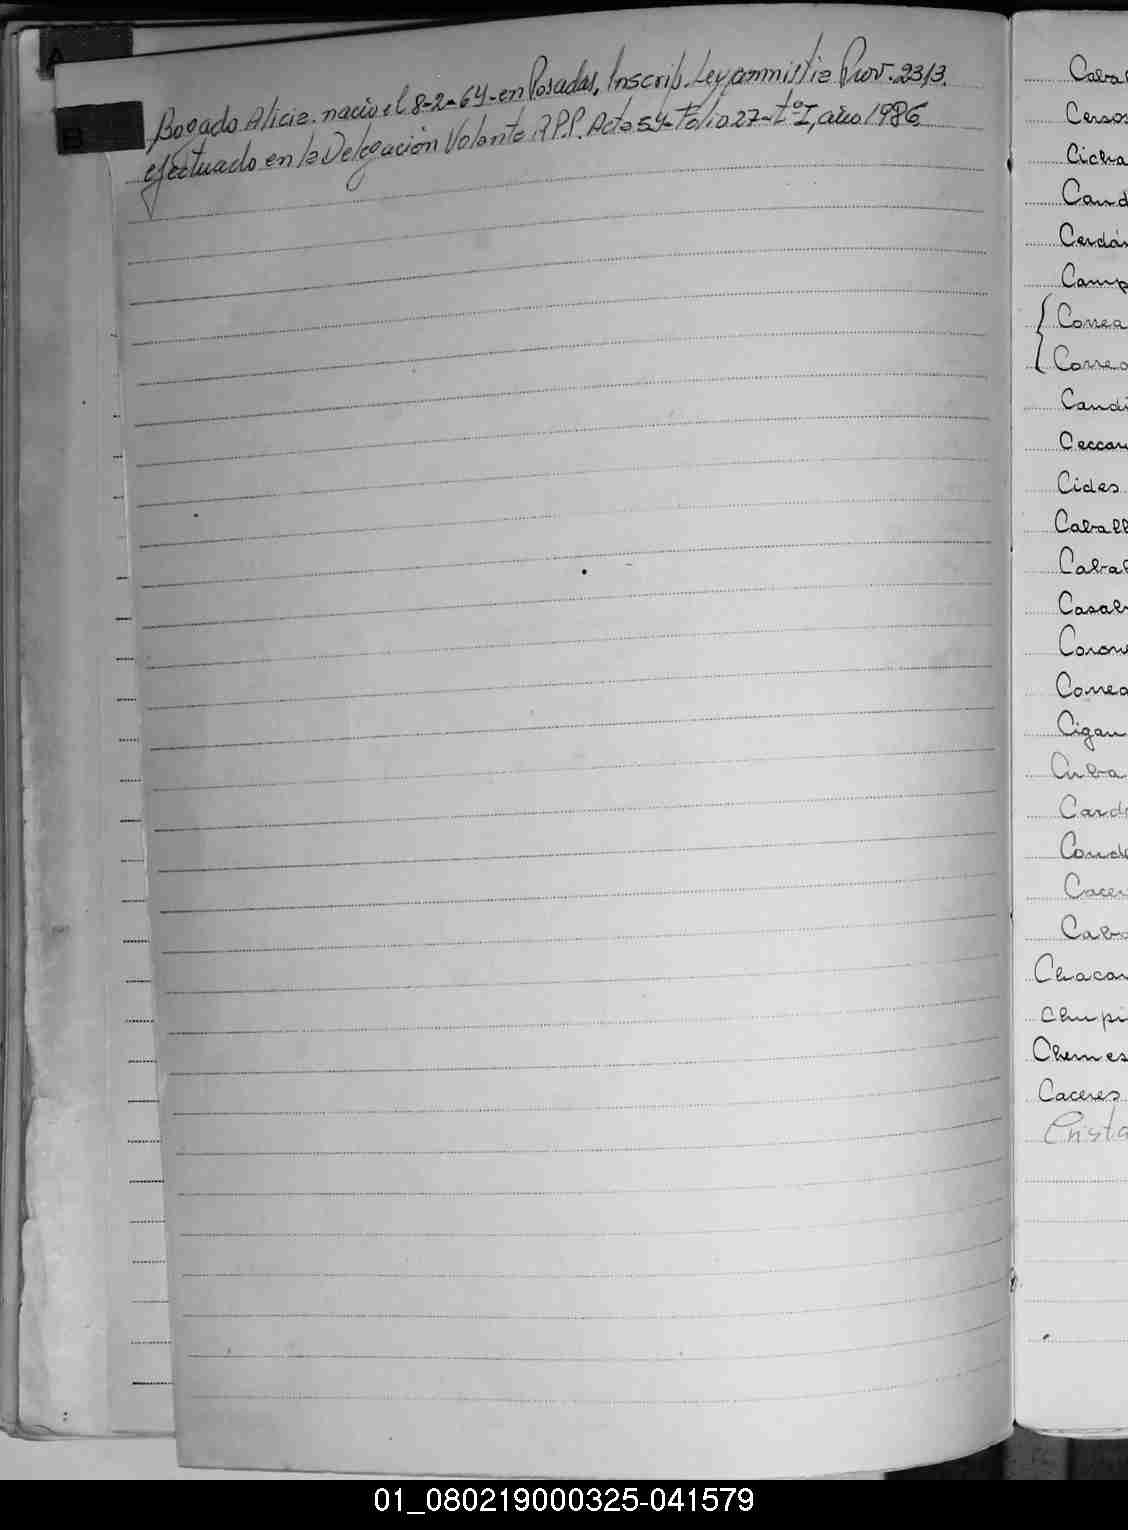 A
B
Bogado Alicia. nacio el 8-2-64-en Posadas, Inscrip. Ley ammistia Prov. 2313.
efectuado en la Delegación Volante R.P.P. Acta 54-Folio 27-t° I, año 1986
Cabal
Cersos
Cicha
Cand
Cerdán
Camp
{ Correa
{ Correa
Candi
Ceccar
Cides
Caball
Cabal
Casab
Corone
Correa
Cigan
Cuba
Card
Conde
Cacer
Cab
Chacar
Chupi
Chemes
Caceres
Crista
01_080219000325-041579